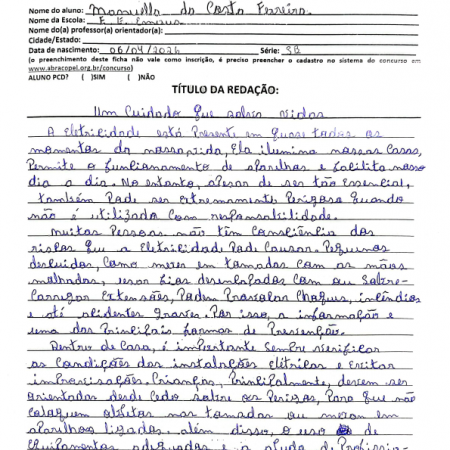 Nome do aluno: Manuella da Costa Ferreira
Nome da Escola: E. E.
Nome do(a) professor(a) orientador(a):
Cidade/Estado:
Data de nascimento: 06/04/2026 Série: 5B
(o preenchimento deste ficha não vale como inscrição, é preciso preencher o cadastro no sistema do concurso em
www.abracopel.org.br/concurso)
ALUNO PCD? ( )SIM ( )NÃO
TÍTULO DA REDAÇÃO:
Um Cuidado que salva vidas
A Eletricidade está Presente em quase todos os
momentos da nossa vida, Ela ilumina nossas Casas,
Permite o funcionamento de aparelhos e facilita nosso
dia a dia. No entanto, apesar de ser tão Essencial,
também Pode ser extremamente Perigosa quando
não é utilizada com responsabilidade.
Muitas Pessoas não têm consciência dos
riscos que a Eletricidade Pode Causar. Pequenos
descuidos, como mexer em tomadas com as mãos
molhadas, usar fios desencapados com ou Sobre-
Carregar Extensões, Podem Provocar Choques, incêndios
e até acidentes graves. Por isso, a informação é
uma das Principais formas de Prevenção.
Dentro de Casa, é importante sempre verificar
as condições das instalações elétricas e evitar
improvisações. Crianças, Principalmente, devem ser
orientadas desde cedo sobre os Perigos, Para que não
coloquem objetos nas tomadas ou mexam em
aparelhos ligados. além disso, o uso de
Equipamentos adequados e a ajuda de Profissio-